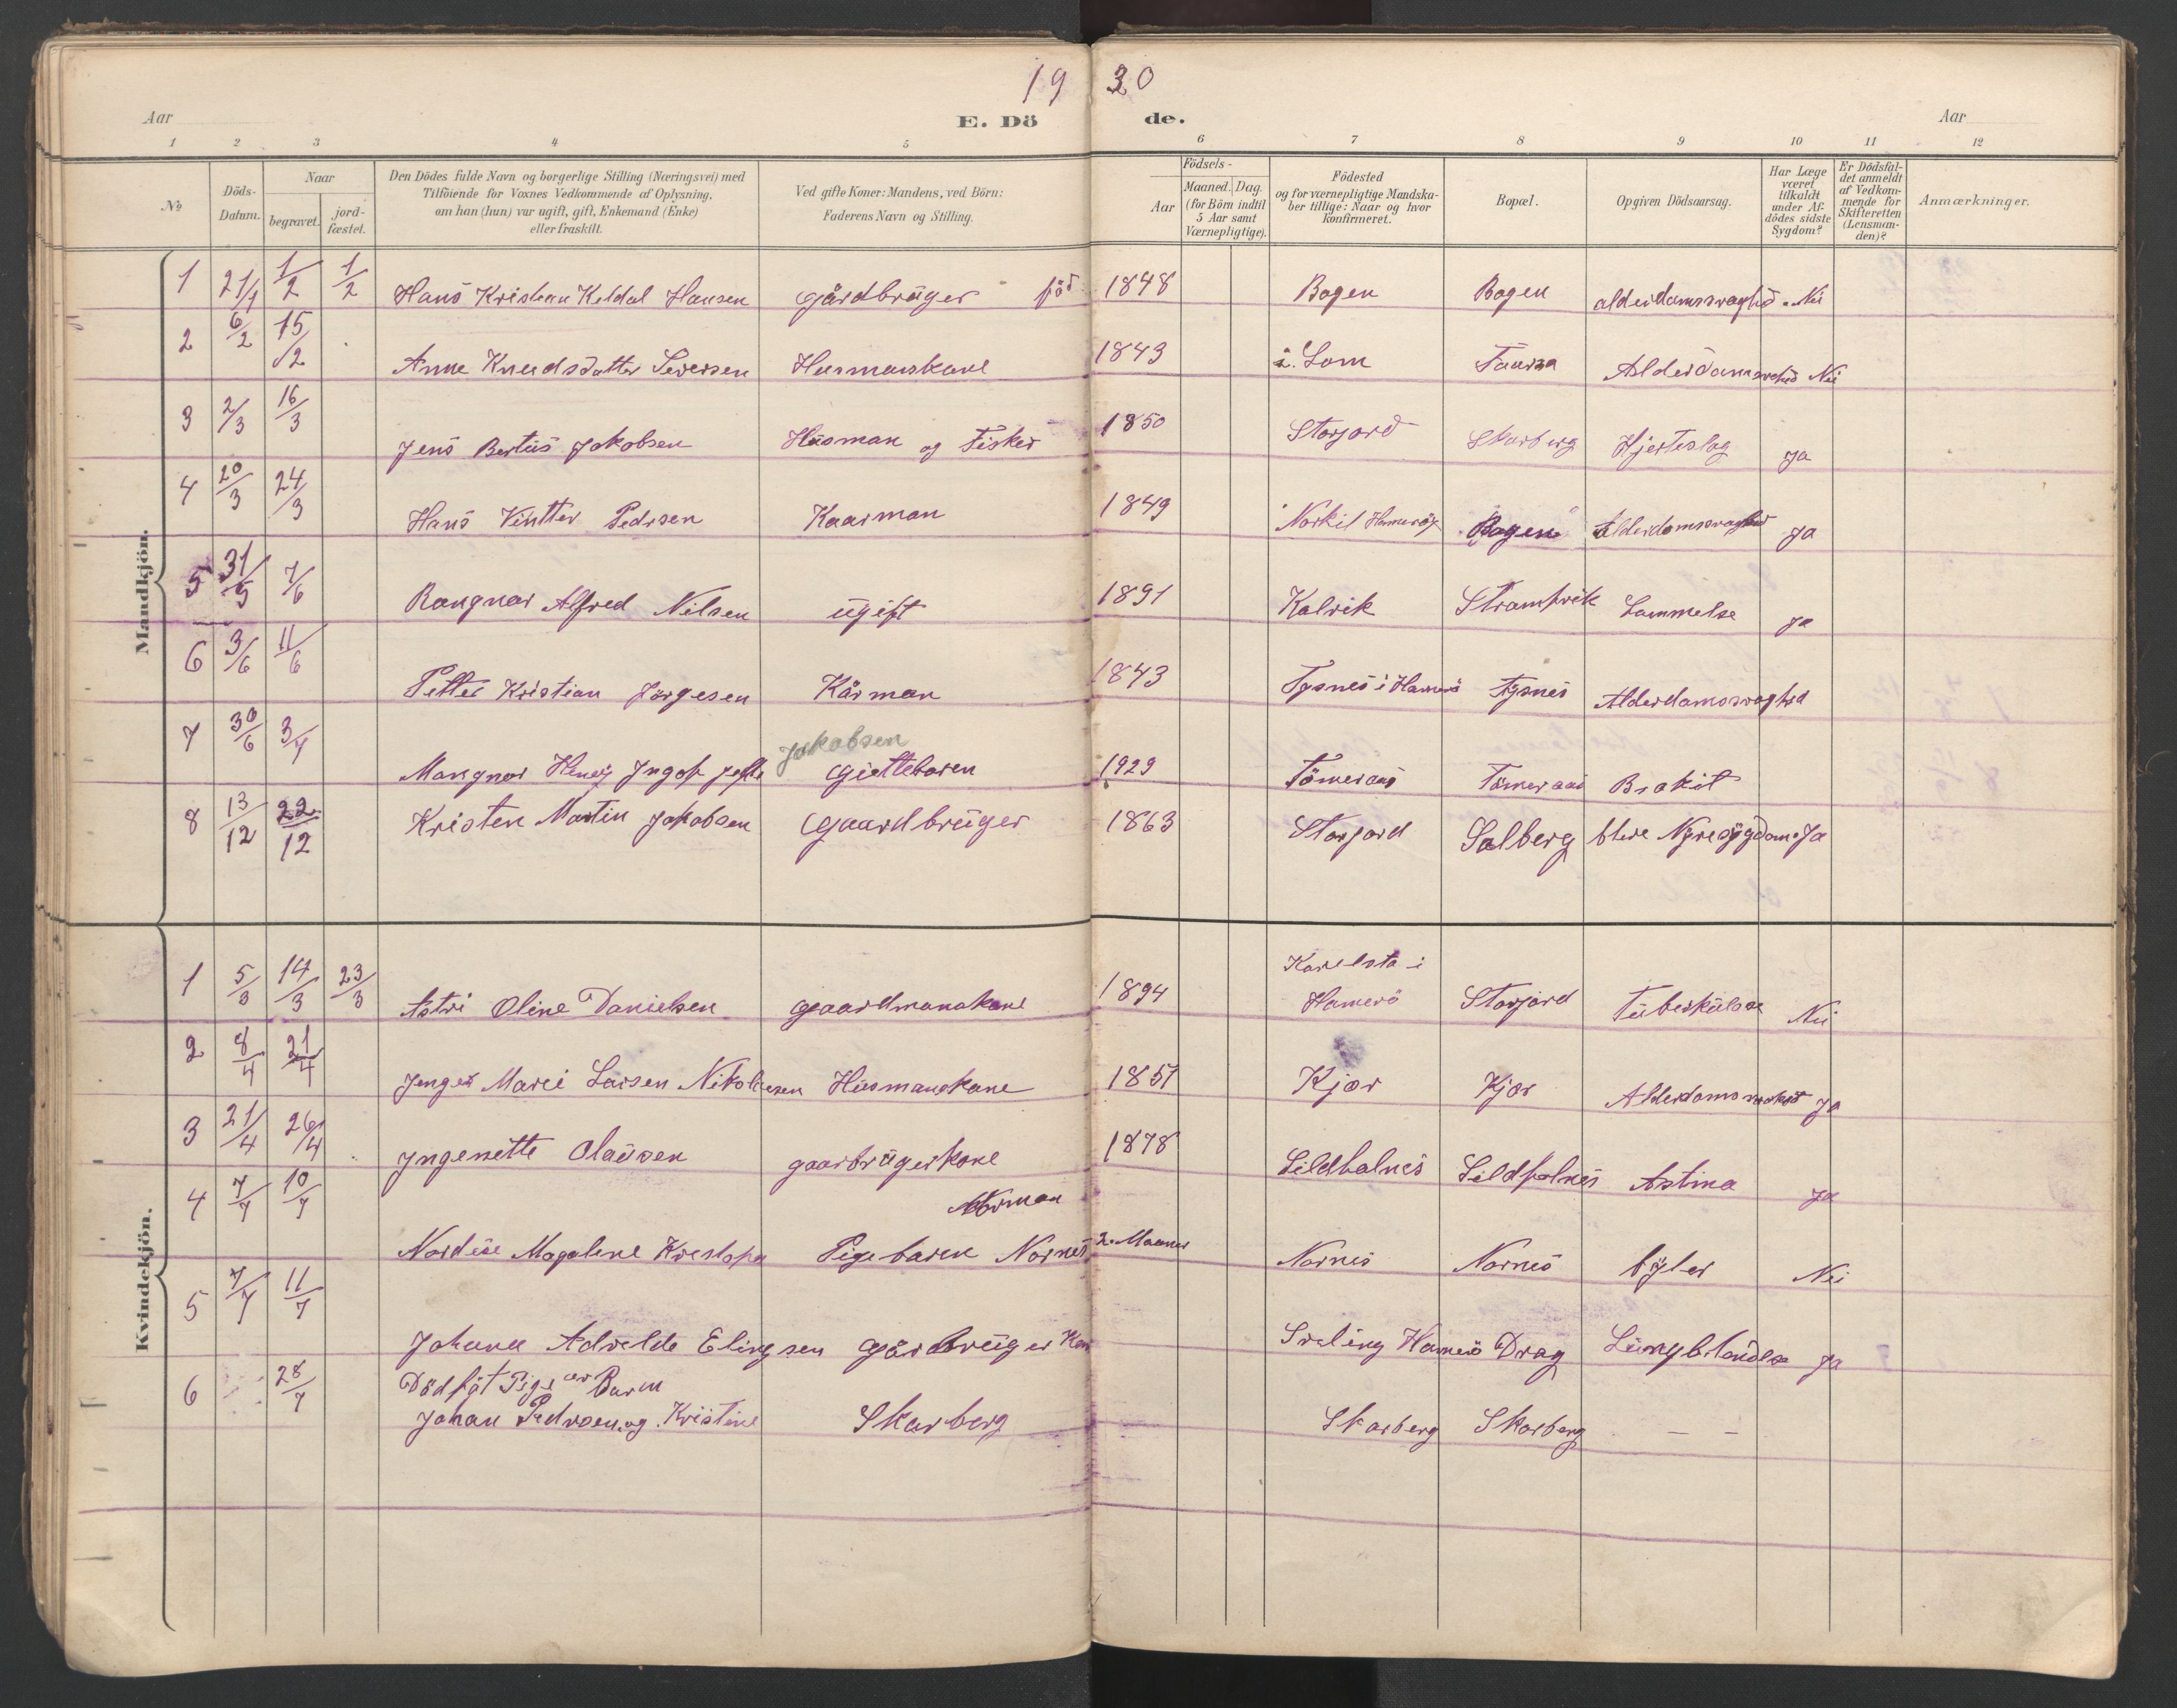 19 30
Aar E. Dö de. Aar
1 2 3 4 5 6 7 8 9 10 11 12
№ Döds-Datum. Naar begravet. jord-fæstet. Den Dödes fulde Navn og borgerlige Stilling (Næringsvei) med Tilföiende for Voxnes Vedkommende af Oplysning, om han (hun) var ugift, gift, Enkemand (Enke) eller fraskilt. Ved gifte Koner: Mandens, ved Börn: Faderens Navn og Stilling. Födsels- Aar Maaned. Dag. (for Börn indtil 5 Aar samt Værnepligtige). Födested og for værnepligtige Mandska-ber tillige: Naar og hvor konfirmeret. Bopæl. Opgiven Dödsaarsag. Har Læge været tilkaldt under Af-dödes sidste Sygdom? Er Dödsfal-det anmeldt af Vedkom-mende for Skifteretten (Lensman-den)? Anmærkninger.
Mandkjön.
1 21/1 1/2 1/2 Hans Kristian Keldal Hansen gårdbrüger föd 1848 Bogen Bogen alderdamsvaghed Nei
2 6/2 15/2 Anne Knudsdatter Seversen Husmanskone 1843 i Lom Taursa Alderdamsvaghed Nei
3 2/3 16/3 Jens Bertüs Jakobsen Hüsman og Fisker 1850 Storjord Skarberg Hjerteslag Ja
4 20/3 24/3 Hans Vintter Pedrsen Kaarman 1849 Norkil Hamerøy Bogen Alderdomsvaghed Ja
5 31/5 7/6 Rangnar Alfred Nilsen ügift 1891 Kalvik Lammelse Ja
6 3/6 11/6 Petter Kristian Jörgesen Kårman 1843 Tysnes i Hamerö Tysnes Alderdamsvaghed
7 30/6 3/7 Mangnar Jakobsen 1929 Tömeraas Tömeraas Brokit
8 13/12 22/12 Kristen Martin Jakobsen gaardbrüger 1863 Storjord Salberg Nyresygdom Ja
Kvindekjön.
1 5/3 14/3 23/3 Astri Oline Danielsen gaardmanskone 1894 Karelsta i Hamerö Storjord Tüberkülose Nei
2 8/4 21/4 Marei Larsen Nikolaisen Hüsmanskone 1851 Kjær Kjær Ja
3 21/4 26/4 Jngenette Olaüsen gaarbrügerkone 1878 Sildhalnes Sildpolnes Astma Ja
4 7/7 10/7 Magdalene Pigebaren Normes 2. Maaner Nornes Nornes Nei
5 7/7 11/7 Johana Advalde Elingsen gårbrüger Kone Hamerö Drag Ja
6 28/7 Dödföt Pige Barn Johan Pedrsen og Kristine Skarberg Skarberg Skarberg – –